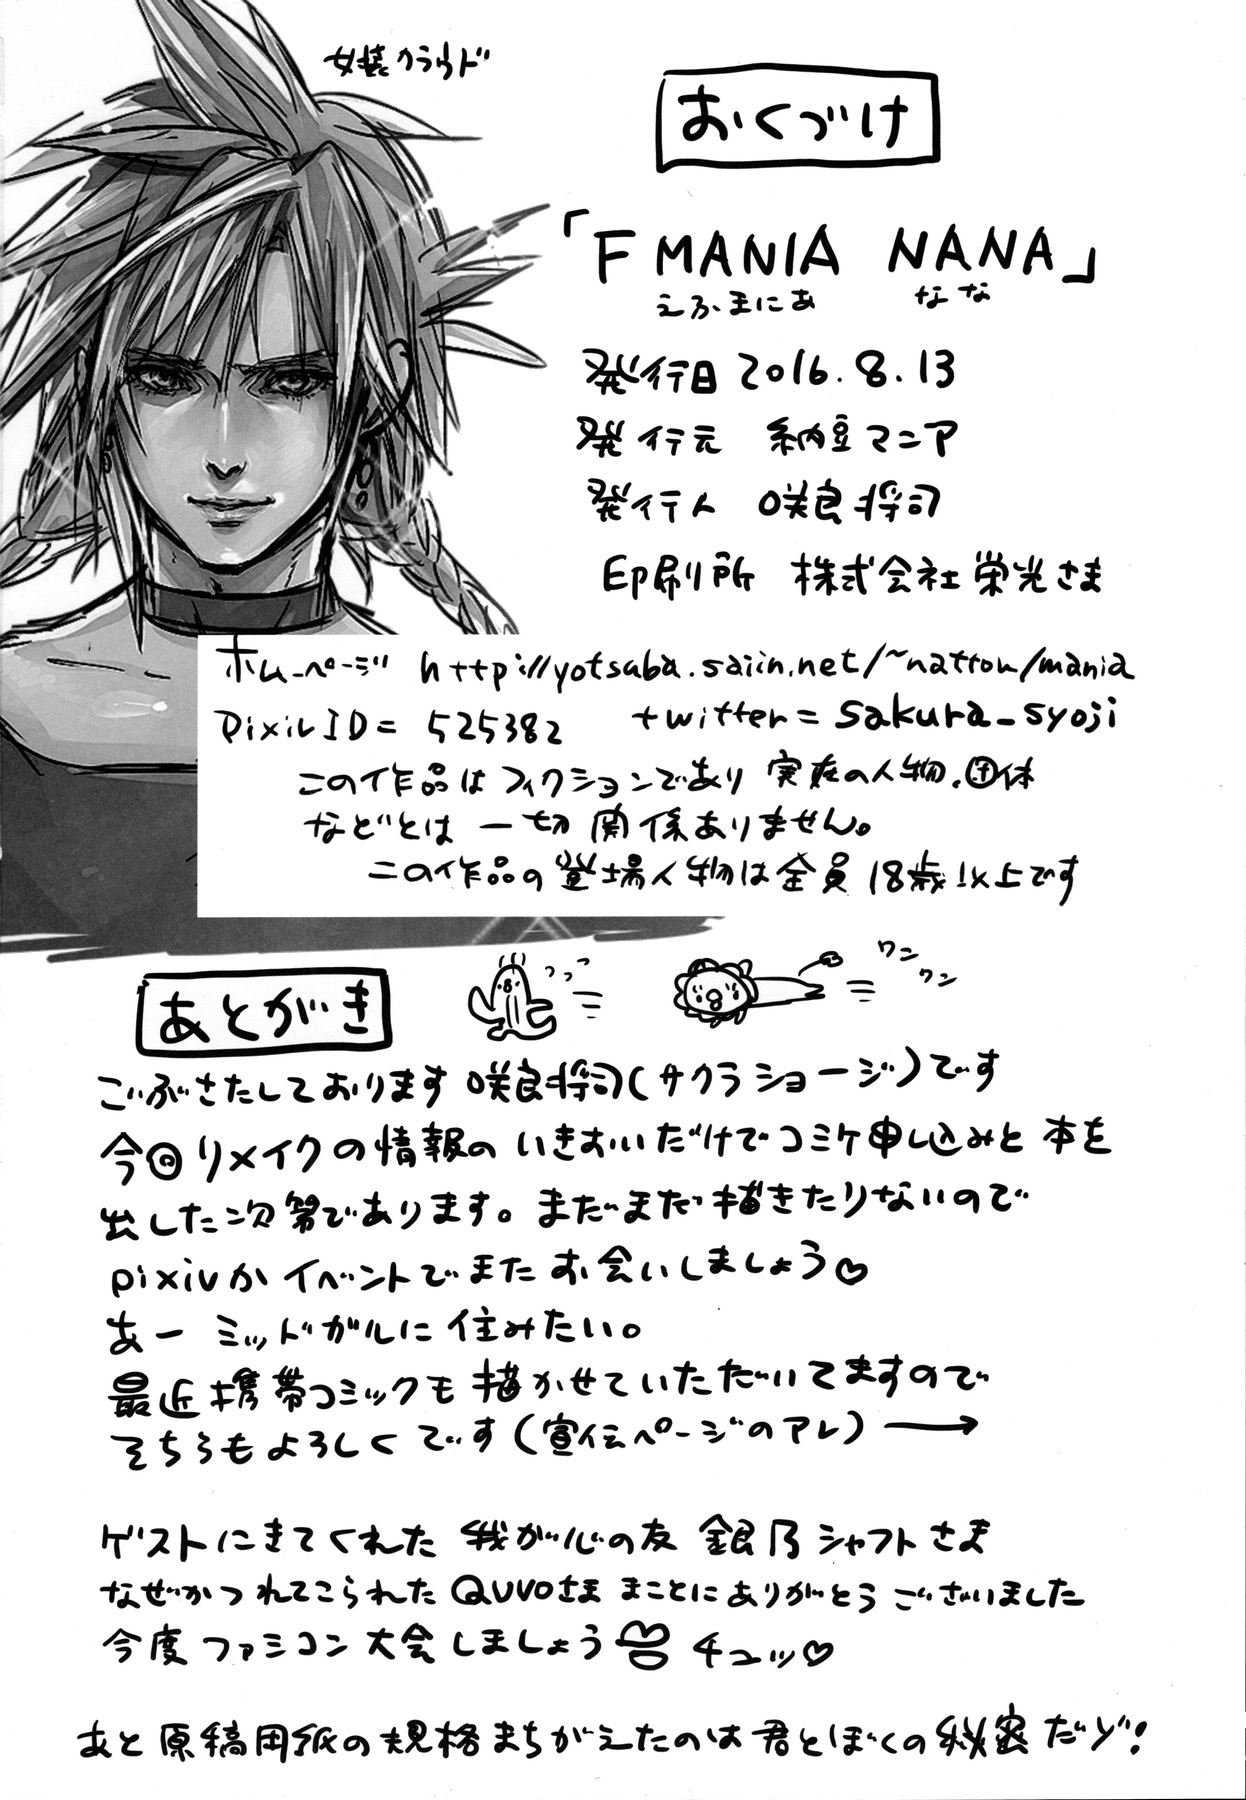 女装クラウド
おくづけ
「F MANIA NANA」
えふまにあ なな
発行日 2016.8.13
発行元 納豆マニア
発行人 咲良将司
印刷所 株式会社栄光さま
ホームページ http://yotsuba.saiin.net/~nattou/mania
pixiv ID = 525382 twitter = sakura_syoji
この作品はフィクションであり 実在の人物、団体
などとは 一切関係ありません。
この作品の登場人物は全員18歳以上です
あとがき
っっっ
ワン
ワン
ごぶさたしております 咲良将司(サクラショージ)です
今回リメイクの情報の いきおいだけでコミケ申し込みと 本を
出した次第であります。まだまだ描きたりないので
pixivかイベントでまた お会いしましょう♡
あー ミッドガルに 住みたい。
最近携帯コミックも 描かせていただいてますので
そちらもよろしくです(宣伝ページのアレ)→
ゲストにきてくれた 我が心の友 銀乃シャフトさま
なぜかつれてこられたQUVOさま まことにありがとうございました
今度 ファミコン大会しましょう チュッ♡
あと原稿用紙の規格まちがえたのは君とぼくの秘密だゾ!